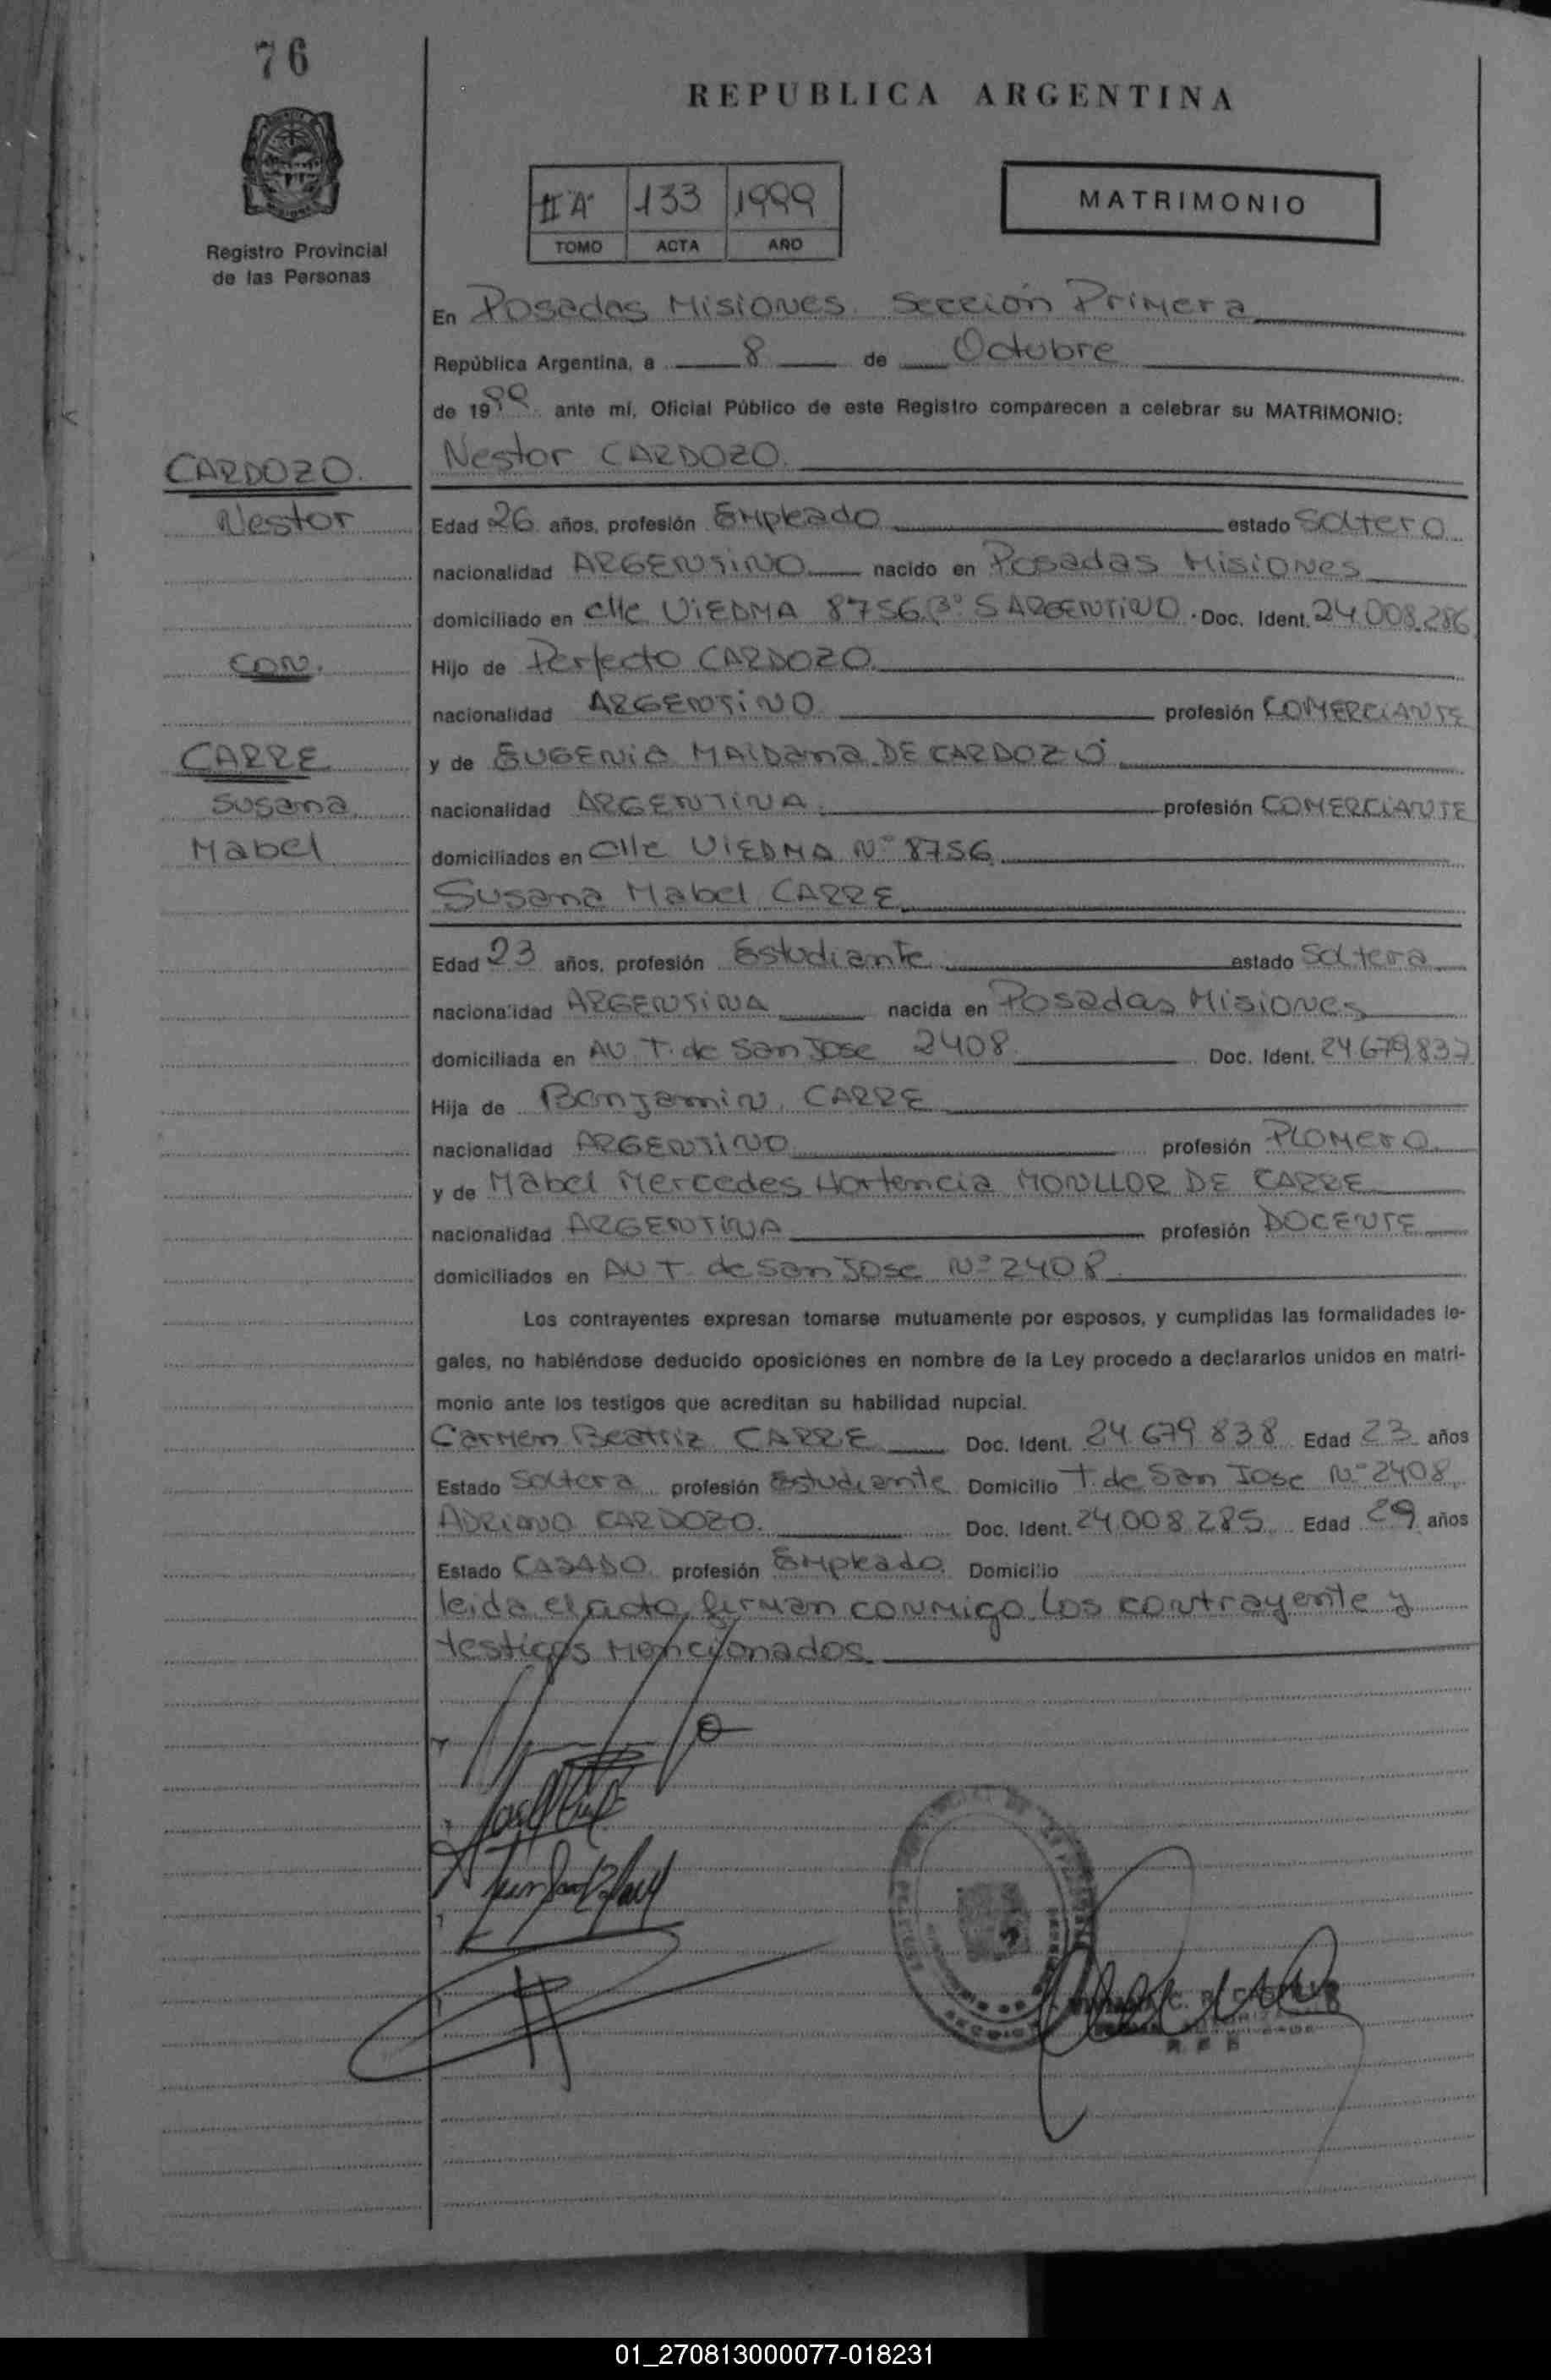 76
REPUBLICA ARGENTINA
Registro Provincial
de las Personas
II "A" 133 1999
TOMO ACTA AÑO
MATRIMONIO
En Posadas Misiones. Sección Primera
República Argentina, a 8 de Octubre
de 1999 ante mí, Oficial Público de este Registro comparecen a celebrar su MATRIMONIO:
CARDOZO.
Nestor
CON.
CARRE
Susana
Mabel
Nestor CARDOZO.
Edad 26 años, profesión Empleado estado Soltero
nacionalidad ARGENTINO nacido en Posadas Misiones
domiciliado en clle VIEDMA 8756 Bº S ARGENTINO. Doc. Ident. 24.008.286
Hijo de Perfecto CARDOZO
nacionalidad ARGENTINO profesión COMERCIANTE
y de EUGENIA MALDANA DE CARDOZO
nacionalidad ARGENTINA profesión COMERCIANTE
domiciliados en Clle VIEDMA Nº 8756
Susana Mabel CARRE
Edad 23 años, profesión Estudiante estado Soltera
nacionalidad ARGENTINA nacida en Posadas Misiones
domiciliada en AV T. de San Jose 2408 Doc. Ident. 24.679.837
Hija de Benjamin CARRE
nacionalidad ARGENTINO profesión PLOMERO
y de Mabel Mercedes Hortencia MONLLOR DE CARRE
nacionalidad ARGENTINA profesión DOCENTE
domiciliados en AV T. de San Jose Nº 2408
Los contrayentes expresan tomarse mutuamente por esposos, y cumplidas las formalidades le-
gales, no habiéndose deducido oposiciones en nombre de la Ley procedo a declararlos unidos en matri-
monio ante los testigos que acreditan su habilidad nupcial.
Carmen Beatriz CARRE Doc. Ident. 24.679.838 Edad 23 años
Estado Soltera profesión Estudiante Domicilio T. de San Jose Nº 2408
ADRIANO CARDOZO. Doc. Ident. 24.008.285 Edad 29 años
Estado CASADO profesión Empleado Domicilio
leida el acto, firman conmigo los contrayente y
testigos mencionados.
01_270813000077-018231